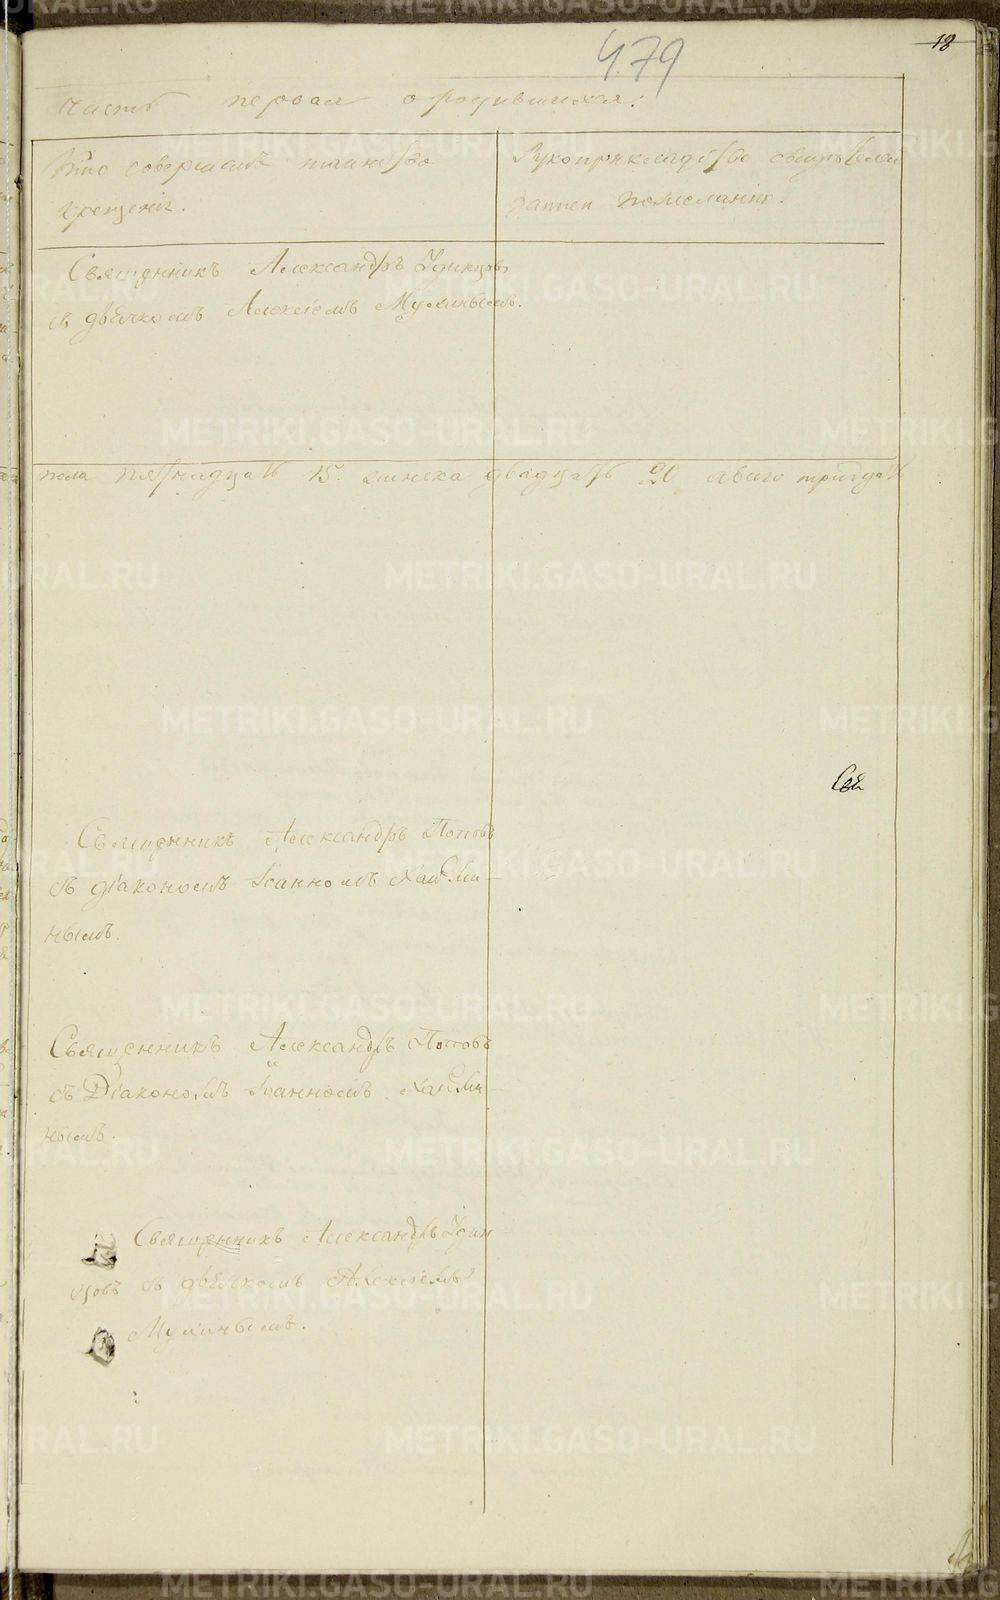 479
18
часть первая о родившихся.
Кто совершалъ таинство
крещенія.
Рукоприкладство свидѣтелей
записи по желанію.
Священникъ Александръ Удинцовъ
съ дьячкомъ Алексіемъ Мухинымъ.
пола пятнадцать 15. женска двадцать 20 обоего тридцать
Свя
Священникъ Александръ Поповъ
съ діакономъ Іоанномъ
нымъ.
Священникъ Александръ Поповъ
съ Діакономъ Іоанномъ
нымъ.
Священникъ Александръ Удин
цовъ съ дьячкомъ Алексіемъ
Мухинымъ.
METRIKI.GASO-URAL.RU